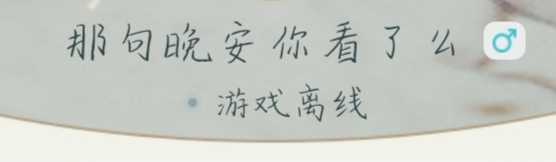 那句晚安你看了么
游戏离线